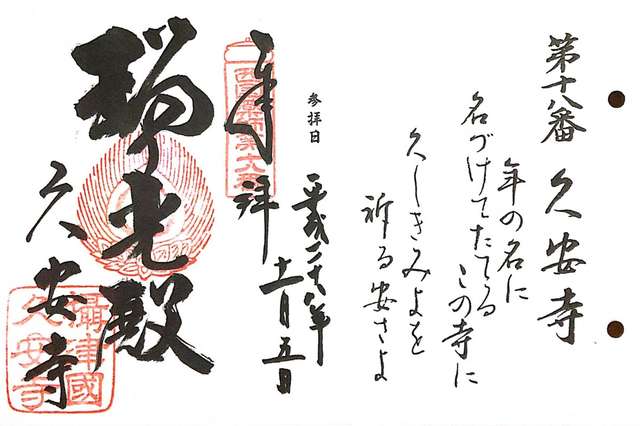 第十八番 久安寺
年の名に
名づけてたてる この寺に
久しきみよを
祈る安さよ
参拝日
平成二十八年
十一月五日
奉拝
西国薬師第十八番
光殿
久安寺
攝津國
久安寺